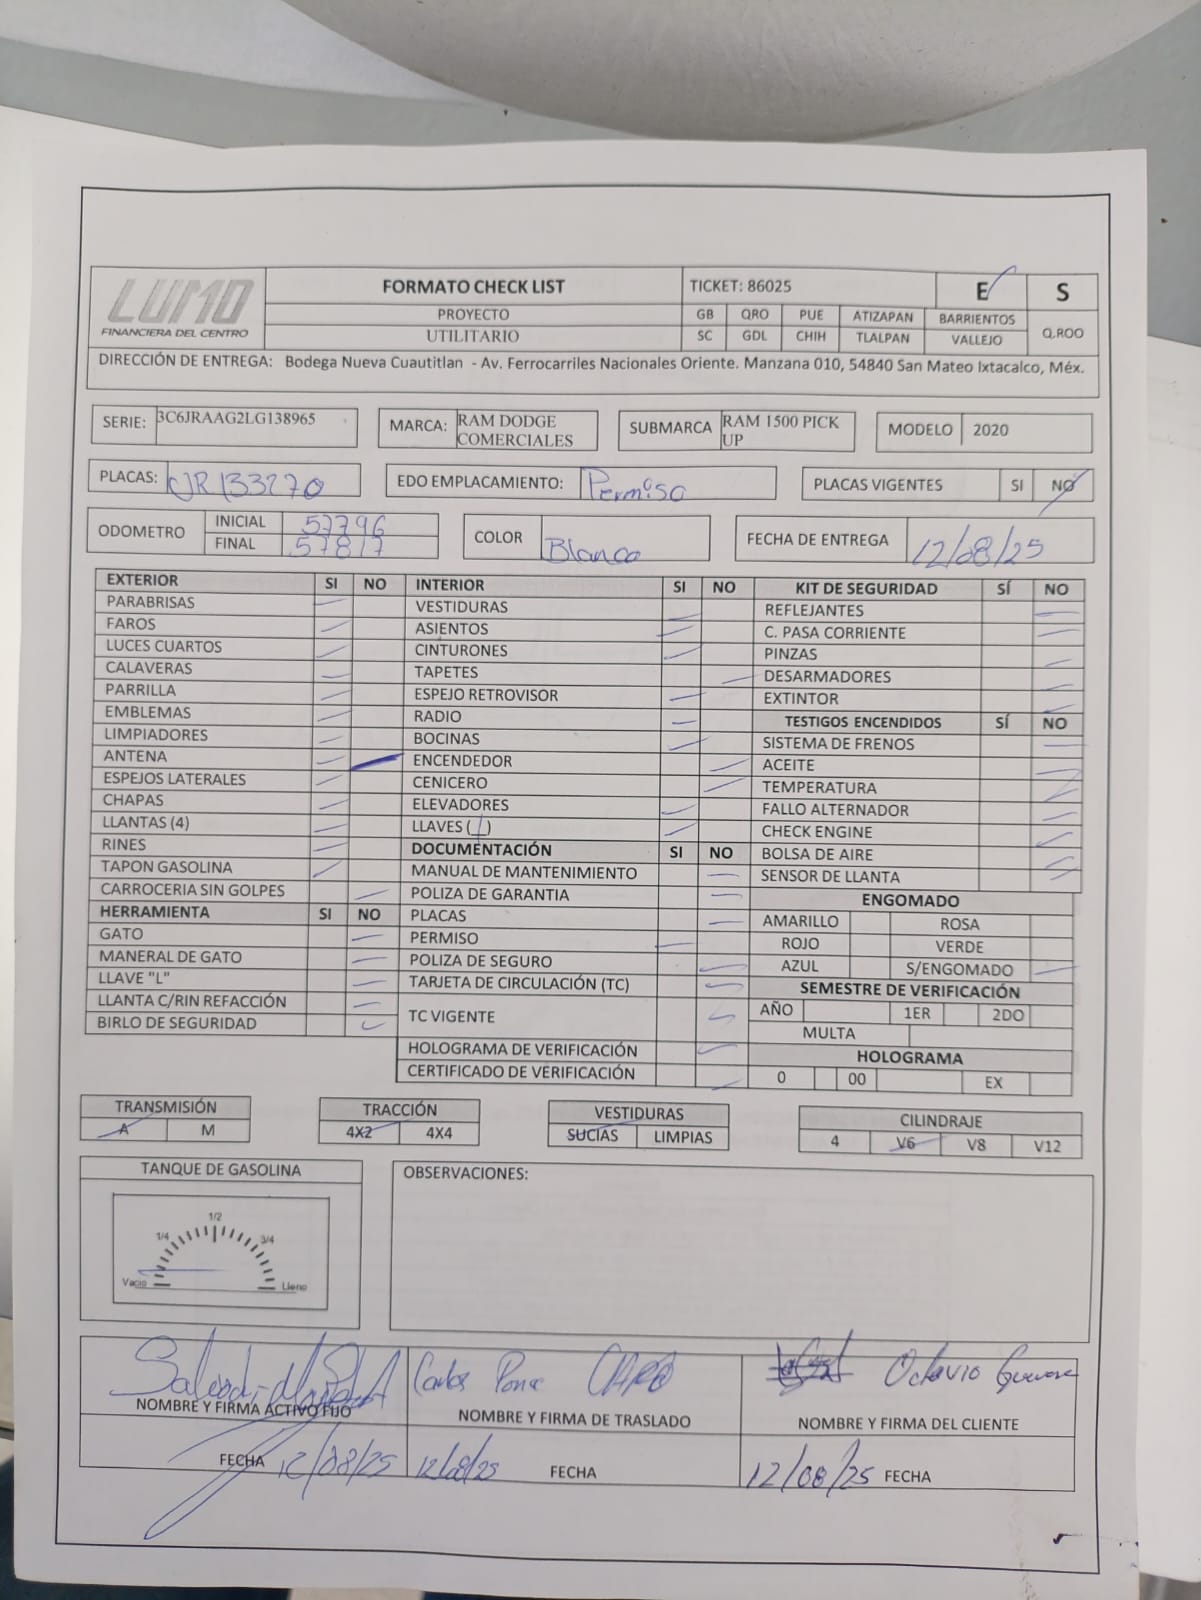 LUMO
FINANCIERA DEL CENTRO
FORMATO CHECK LIST
PROYECTO
UTILITARIO
TICKET: 86025 E S
GB QRO PUE ATIZAPAN BARRIENTOS Q.ROO
SC GDL CHIH TLALPAN VALLEJO
DIRECCIÓN DE ENTREGA: Bodega Nueva Cuautitlan - Av. Ferrocarriles Nacionales Oriente. Manzana 010, 54840 San Mateo Ixtacalco, Méx.
SERIE: 3C6JRAAG2LG138965 MARCA: RAM DODGE COMERCIALES SUBMARCA RAM 1500 PICK UP MODELO 2020
PLACAS: JR133270 EDO EMPLACAMIENTO: Permiso PLACAS VIGENTES SI NO
ODOMETRO INICIAL 57796 COLOR Blanco FECHA DE ENTREGA 12/08/25
FINAL 57817
EXTERIOR SI NO
PARABRISAS
FAROS
LUCES CUARTOS
CALAVERAS
PARRILLA
EMBLEMAS
LIMPIADORES
ANTENA
ESPEJOS LATERALES
CHAPAS
LLANTAS (4)
RINES
TAPON GASOLINA
CARROCERIA SIN GOLPES
HERRAMIENTA SI NO
GATO
MANERAL DE GATO
LLAVE "L"
LLANTA C/RIN REFACCIÓN
BIRLO DE SEGURIDAD
INTERIOR SI NO
VESTIDURAS
ASIENTOS
CINTURONES
TAPETES
ESPEJO RETROVISOR
RADIO
BOCINAS
ENCENDEDOR
CENICERO
ELEVADORES
LLAVES (1)
DOCUMENTACIÓN SI NO
MANUAL DE MANTENIMIENTO
POLIZA DE GARANTIA
PLACAS
PERMISO
POLIZA DE SEGURO
TARJETA DE CIRCULACIÓN (TC)
TC VIGENTE
HOLOGRAMA DE VERIFICACIÓN
CERTIFICADO DE VERIFICACIÓN
KIT DE SEGURIDAD SÍ NO
REFLEJANTES
C. PASA CORRIENTE
PINZAS
DESARMADORES
EXTINTOR
TESTIGOS ENCENDIDOS SÍ NO
SISTEMA DE FRENOS
ACEITE
TEMPERATURA
FALLO ALTERNADOR
CHECK ENGINE
BOLSA DE AIRE
SENSOR DE LLANTA
ENGOMADO
AMARILLO ROSA
ROJO VERDE
AZUL S/ENGOMADO
SEMESTRE DE VERIFICACIÓN
AÑO 1ER 2DO
MULTA
HOLOGRAMA
0 00 EX
TRANSMISIÓN
A M
TRACCIÓN
4X2 4X4
VESTIDURAS
SUCIAS LIMPIAS
CILINDRAJE
4 V6 V8 V12
TANQUE DE GASOLINA
1/2
1/4 3/4
Vacio Lleno
OBSERVACIONES:
Carlos Ponce Octavio Guevara
NOMBRE Y FIRMA ACTIVO FIJO NOMBRE Y FIRMA DE TRASLADO NOMBRE Y FIRMA DEL CLIENTE
FECHA 12/08/25 12/08/25 FECHA 12/08/25 FECHA